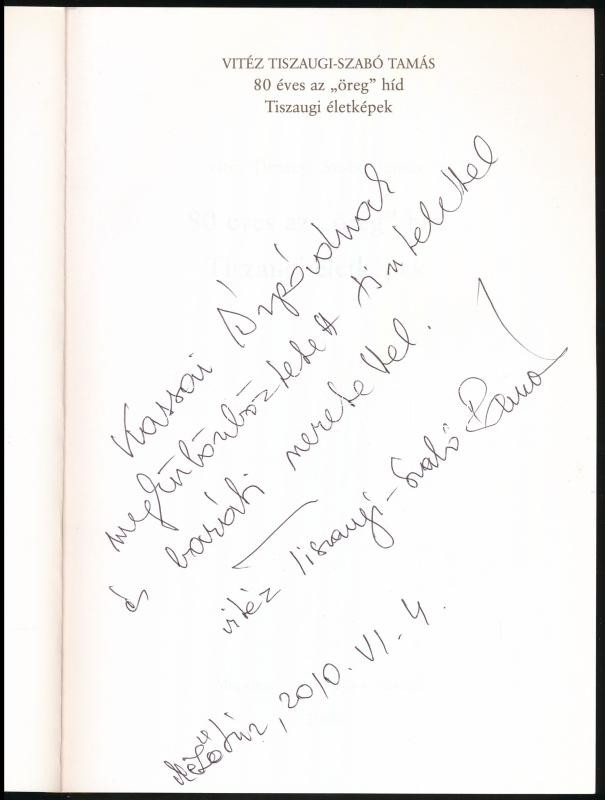 VITÉZ TISZAUGI-SZABÓ TAMÁS
80 éves az „öreg” híd
Tiszaugi életképek
Kassai Árpádnak
megkülönböztetett tisztelettel
és baráti szeretettel.
vitéz Tiszaugi-Szabó Tamás
Mezőtúr, 2010. VI. 4.